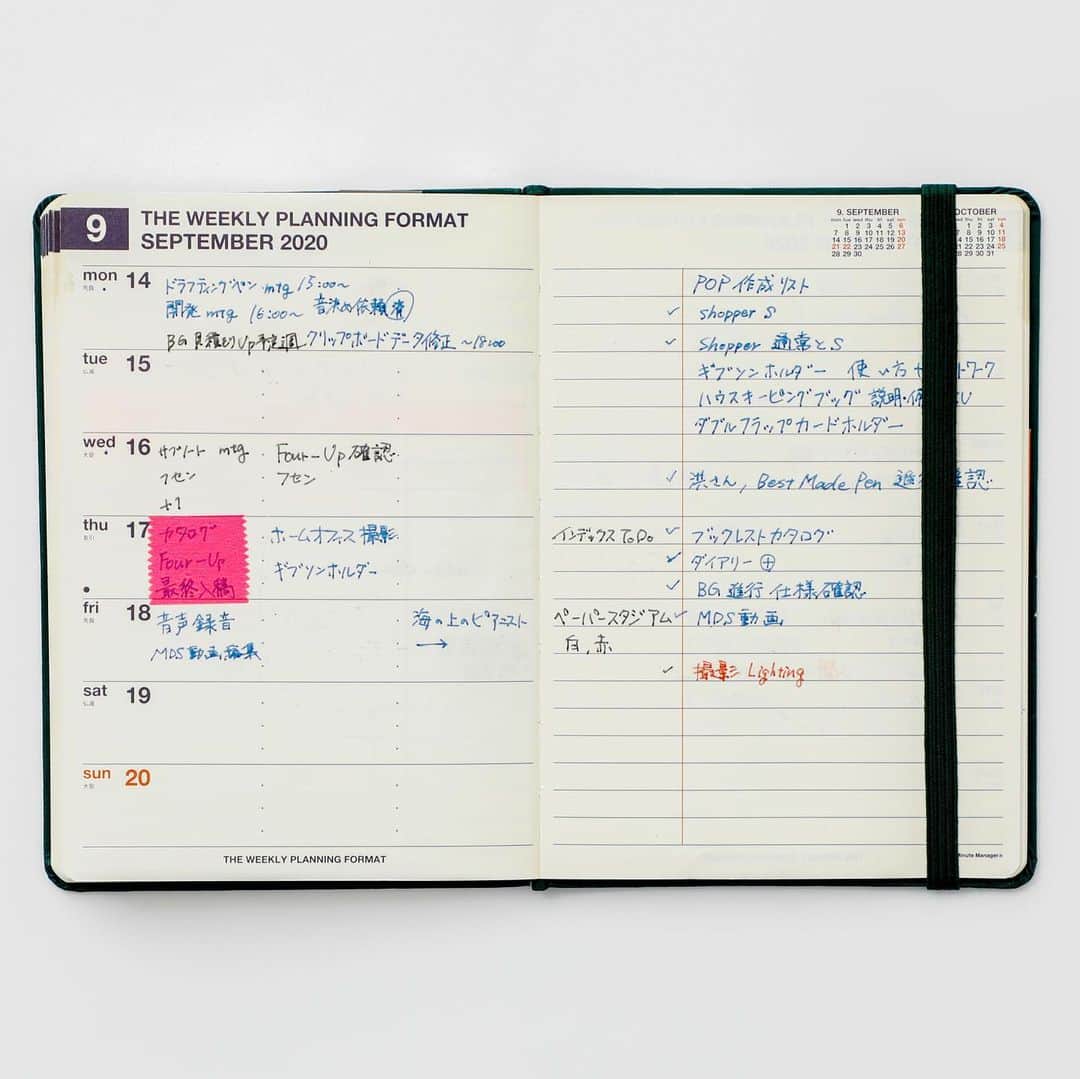 9
THE WEEKLY PLANNING FORMAT
SEPTEMBER 2020
mon 14
先負
ドラフティングペン mtg 15:00〜
開発 mtg 16:00〜 音決め依頼 済
BG 見積もりUp予定週 クリップボードデータ修正 〜18:00
tue 15
仏滅
wed 16
大安
サプリート mtg Four-Up 確認
フセン フセン
+1
thu 17
カタログ ホームオフィス撮影
Four-Up ギブソンホルダー
最終入稿
fri 18
先負
音声録音 海の上のピアニスト
MDS動画編集 →
sat 19
仏滅
sun 20
大安
THE WEEKLY PLANNING FORMAT
9. SEPTEMBER
mon tue wed thu fri sat sun
1 2 3 4 5 6
7 8 9 10 11 12 13
14 15 16 17 18 19 20
21 22 23 24 25 26 27
28 29 30
OCTOBER
thu fri sat sun
1 2 3 4
8 9 10 11
15 16 17 18
22 23 24 25
29 30 31
POP 作成リスト
✓ shopper S
✓ Shopper 通常とS
ギブソンホルダー 使い方 + トワーク
ハウスキーピングブック 説明・
ダブルフラップカードホルダー
✓ 洪さん, Best Made Pen 確認
インデックス ToDo ✓ ブックレストカタログ
✓ ダイアリー ⊕
✓ BG 進行 仕様確認
ペーパースタジアム ✓ MDS 動画
白, 赤
✓ 撮影 Lighting
Minute Manager